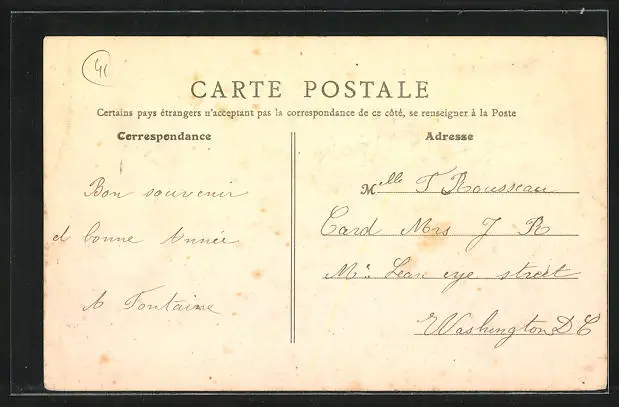 41
CARTE POSTALE
Certains pays étrangers n'acceptant pas la correspondance de ce côté, se renseigner à la Poste
Correspondance
Bon souvenir
et bonne Année
A Fontaine
Adresse
Melle T Rousseau
Card Mrs J R
Mc Lean eye street
Washington D C